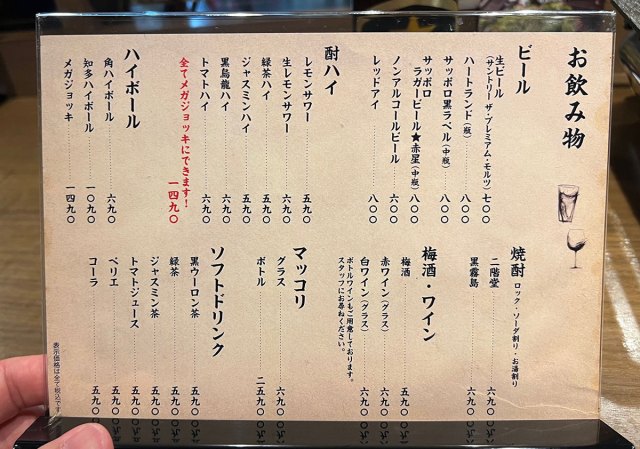 お飲み物
ビール
生ビール
(サントリー ザ・プレミアム・モルツ) 七〇〇
ハートランド(瓶) 八〇〇
サッポロ黒ラベル(中瓶) 八〇〇
サッポロ
ラガービール★赤星(中瓶) 八〇〇
ノンアルコールビール 六九〇
レッドアイ 八〇〇
酎ハイ
レモンサワー 五九〇
生レモンサワー 六九〇
緑茶ハイ 五九〇
ジャスミンハイ 五九〇
黒烏龍ハイ 六九〇
トマトハイ 六九〇
全てメガジョッキにできます! 一四九〇
ハイボール
角ハイボール 六九〇
知多ハイボール 一〇九〇
メガジョッキ 一四九〇
焼酎 ロック・ソーダ割り・お湯割り
二階堂 六九〇
黒霧島 六九〇
梅酒・ワイン
梅酒 五九〇
赤ワイン(グラス) 六九〇
白ワイン(グラス) 六九〇
ボトルワインもご用意しております。
スタッフにお尋ねください。
マッコリ
グラス 六九〇
ボトル 二五九〇
ソフトドリンク
黒ウーロン茶 五九〇
緑茶 五九〇
ジャスミン茶 五九〇
トマトジュース 五九〇
ペリエ 五九〇
コーラ 五九〇
表示価格は全て税込です